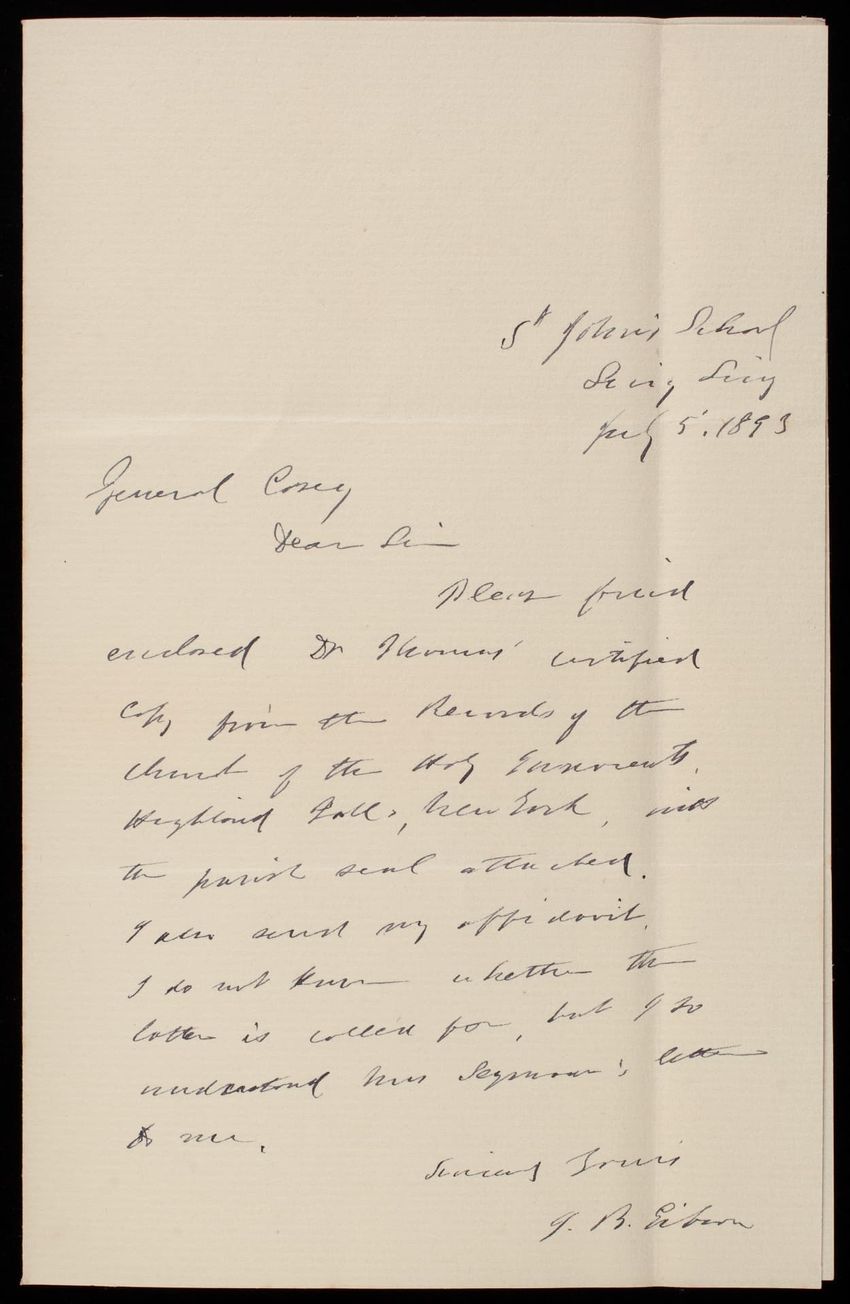 St John's School
Sing Sing
July 5. 1893
General Casey
Dear Sir
Please find
enclosed Dr Thomas' certified
copy from the Records of the
Church of the Holy Innocents,
Highland Falls, New York, with
the parish seal attached.
I also send my affidavit.
I do not know whether the
latter is called for, but I so
understood Mrs Seymour's letter
to me.
Sincerely Yours
J. B. Gibson